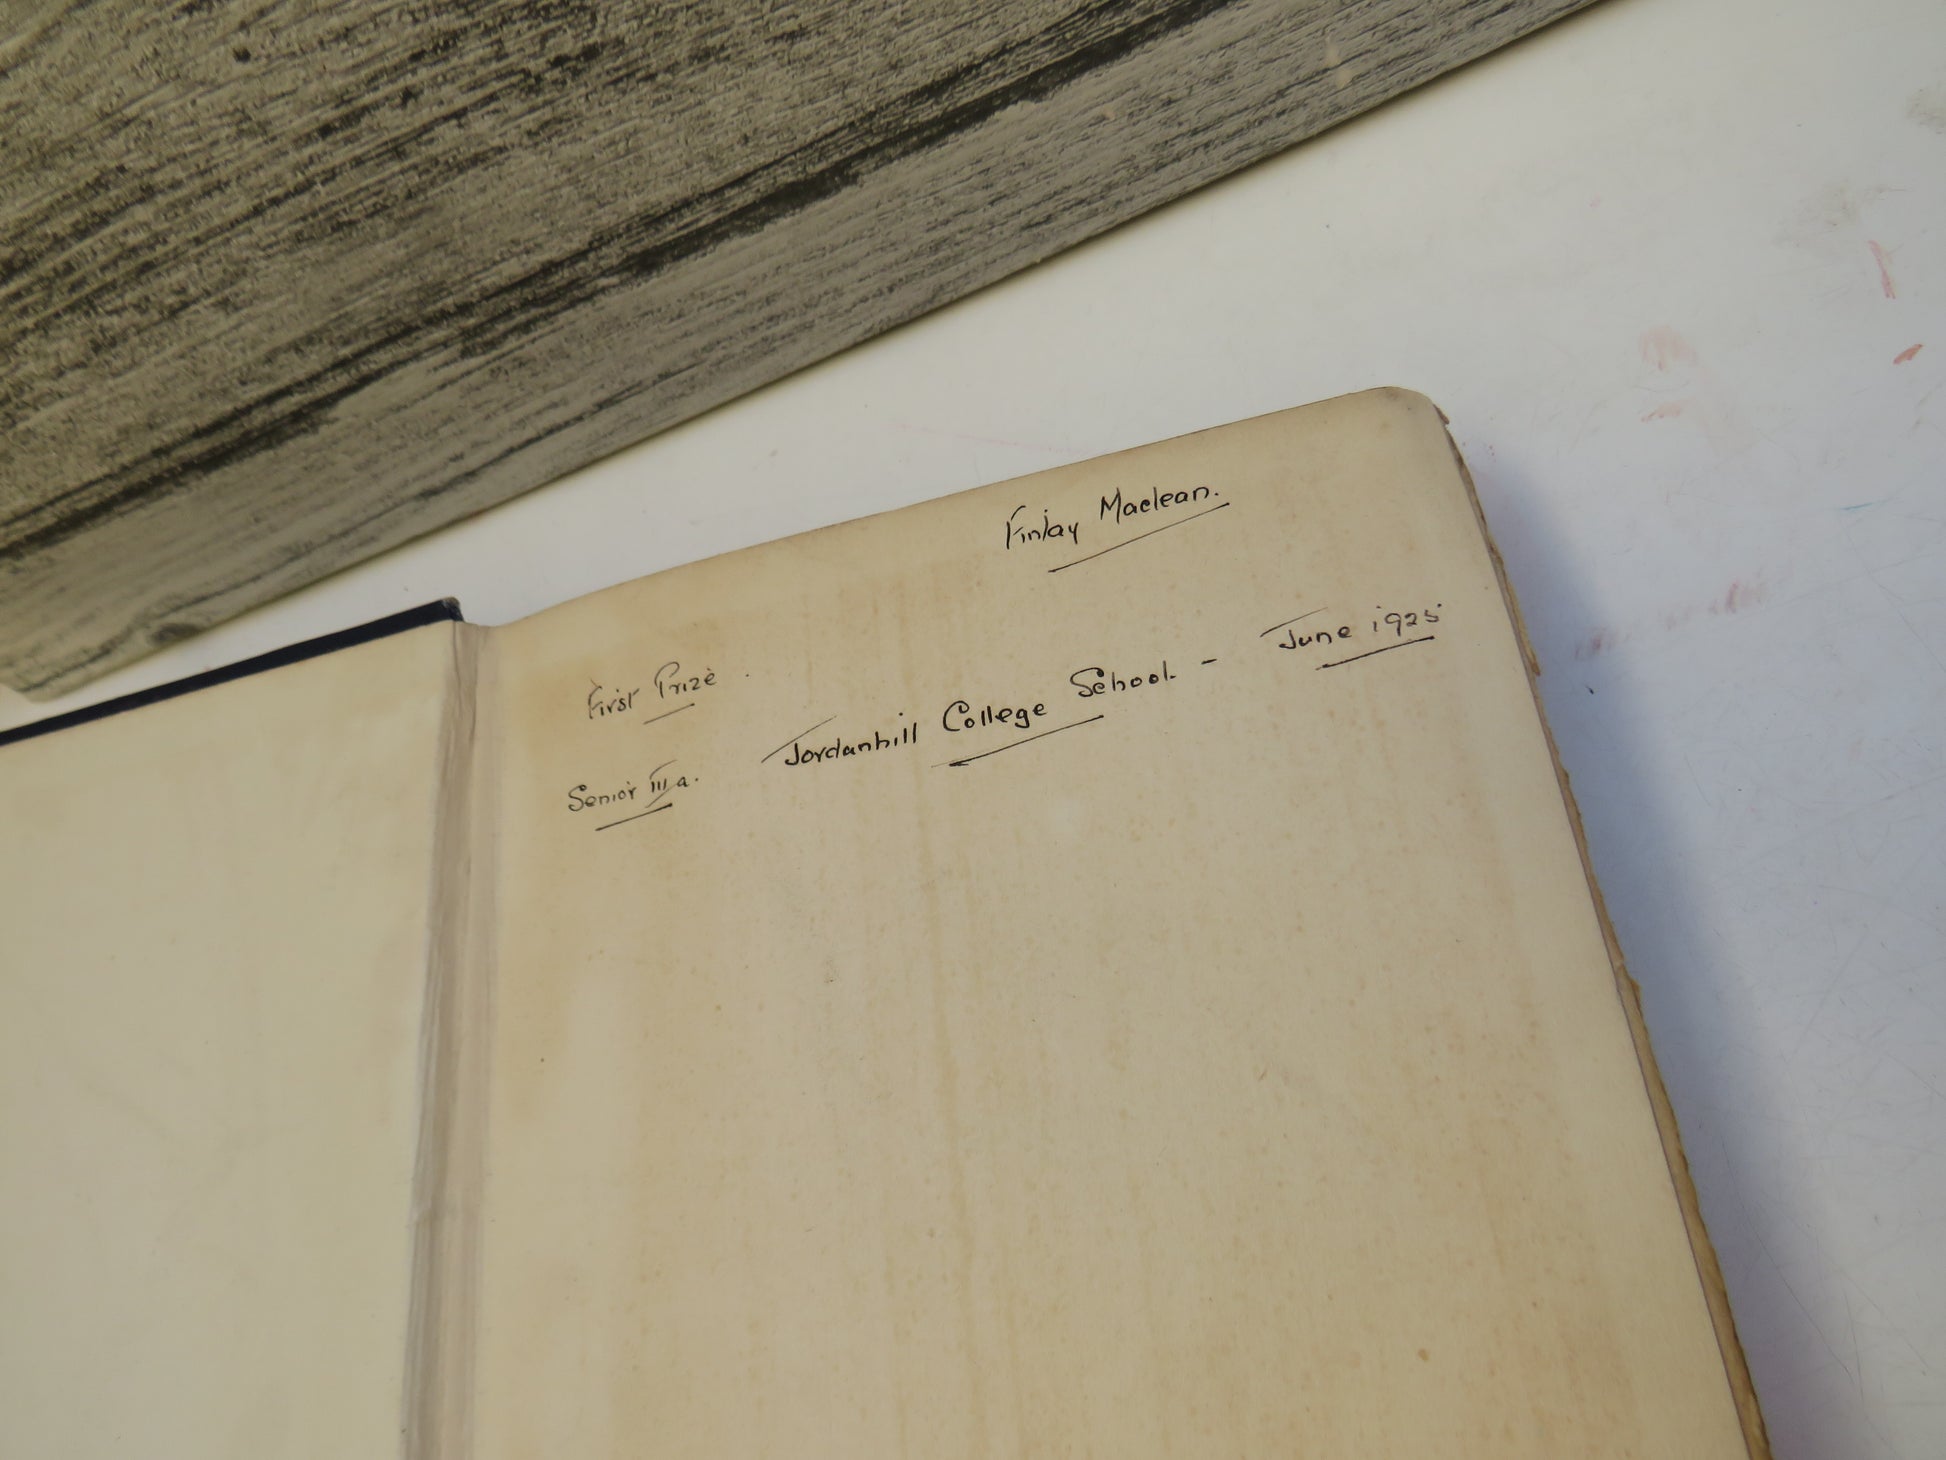 Finlay Maclean.
First Prize.
Jordanhill College School. - June 1925
Senior III a.